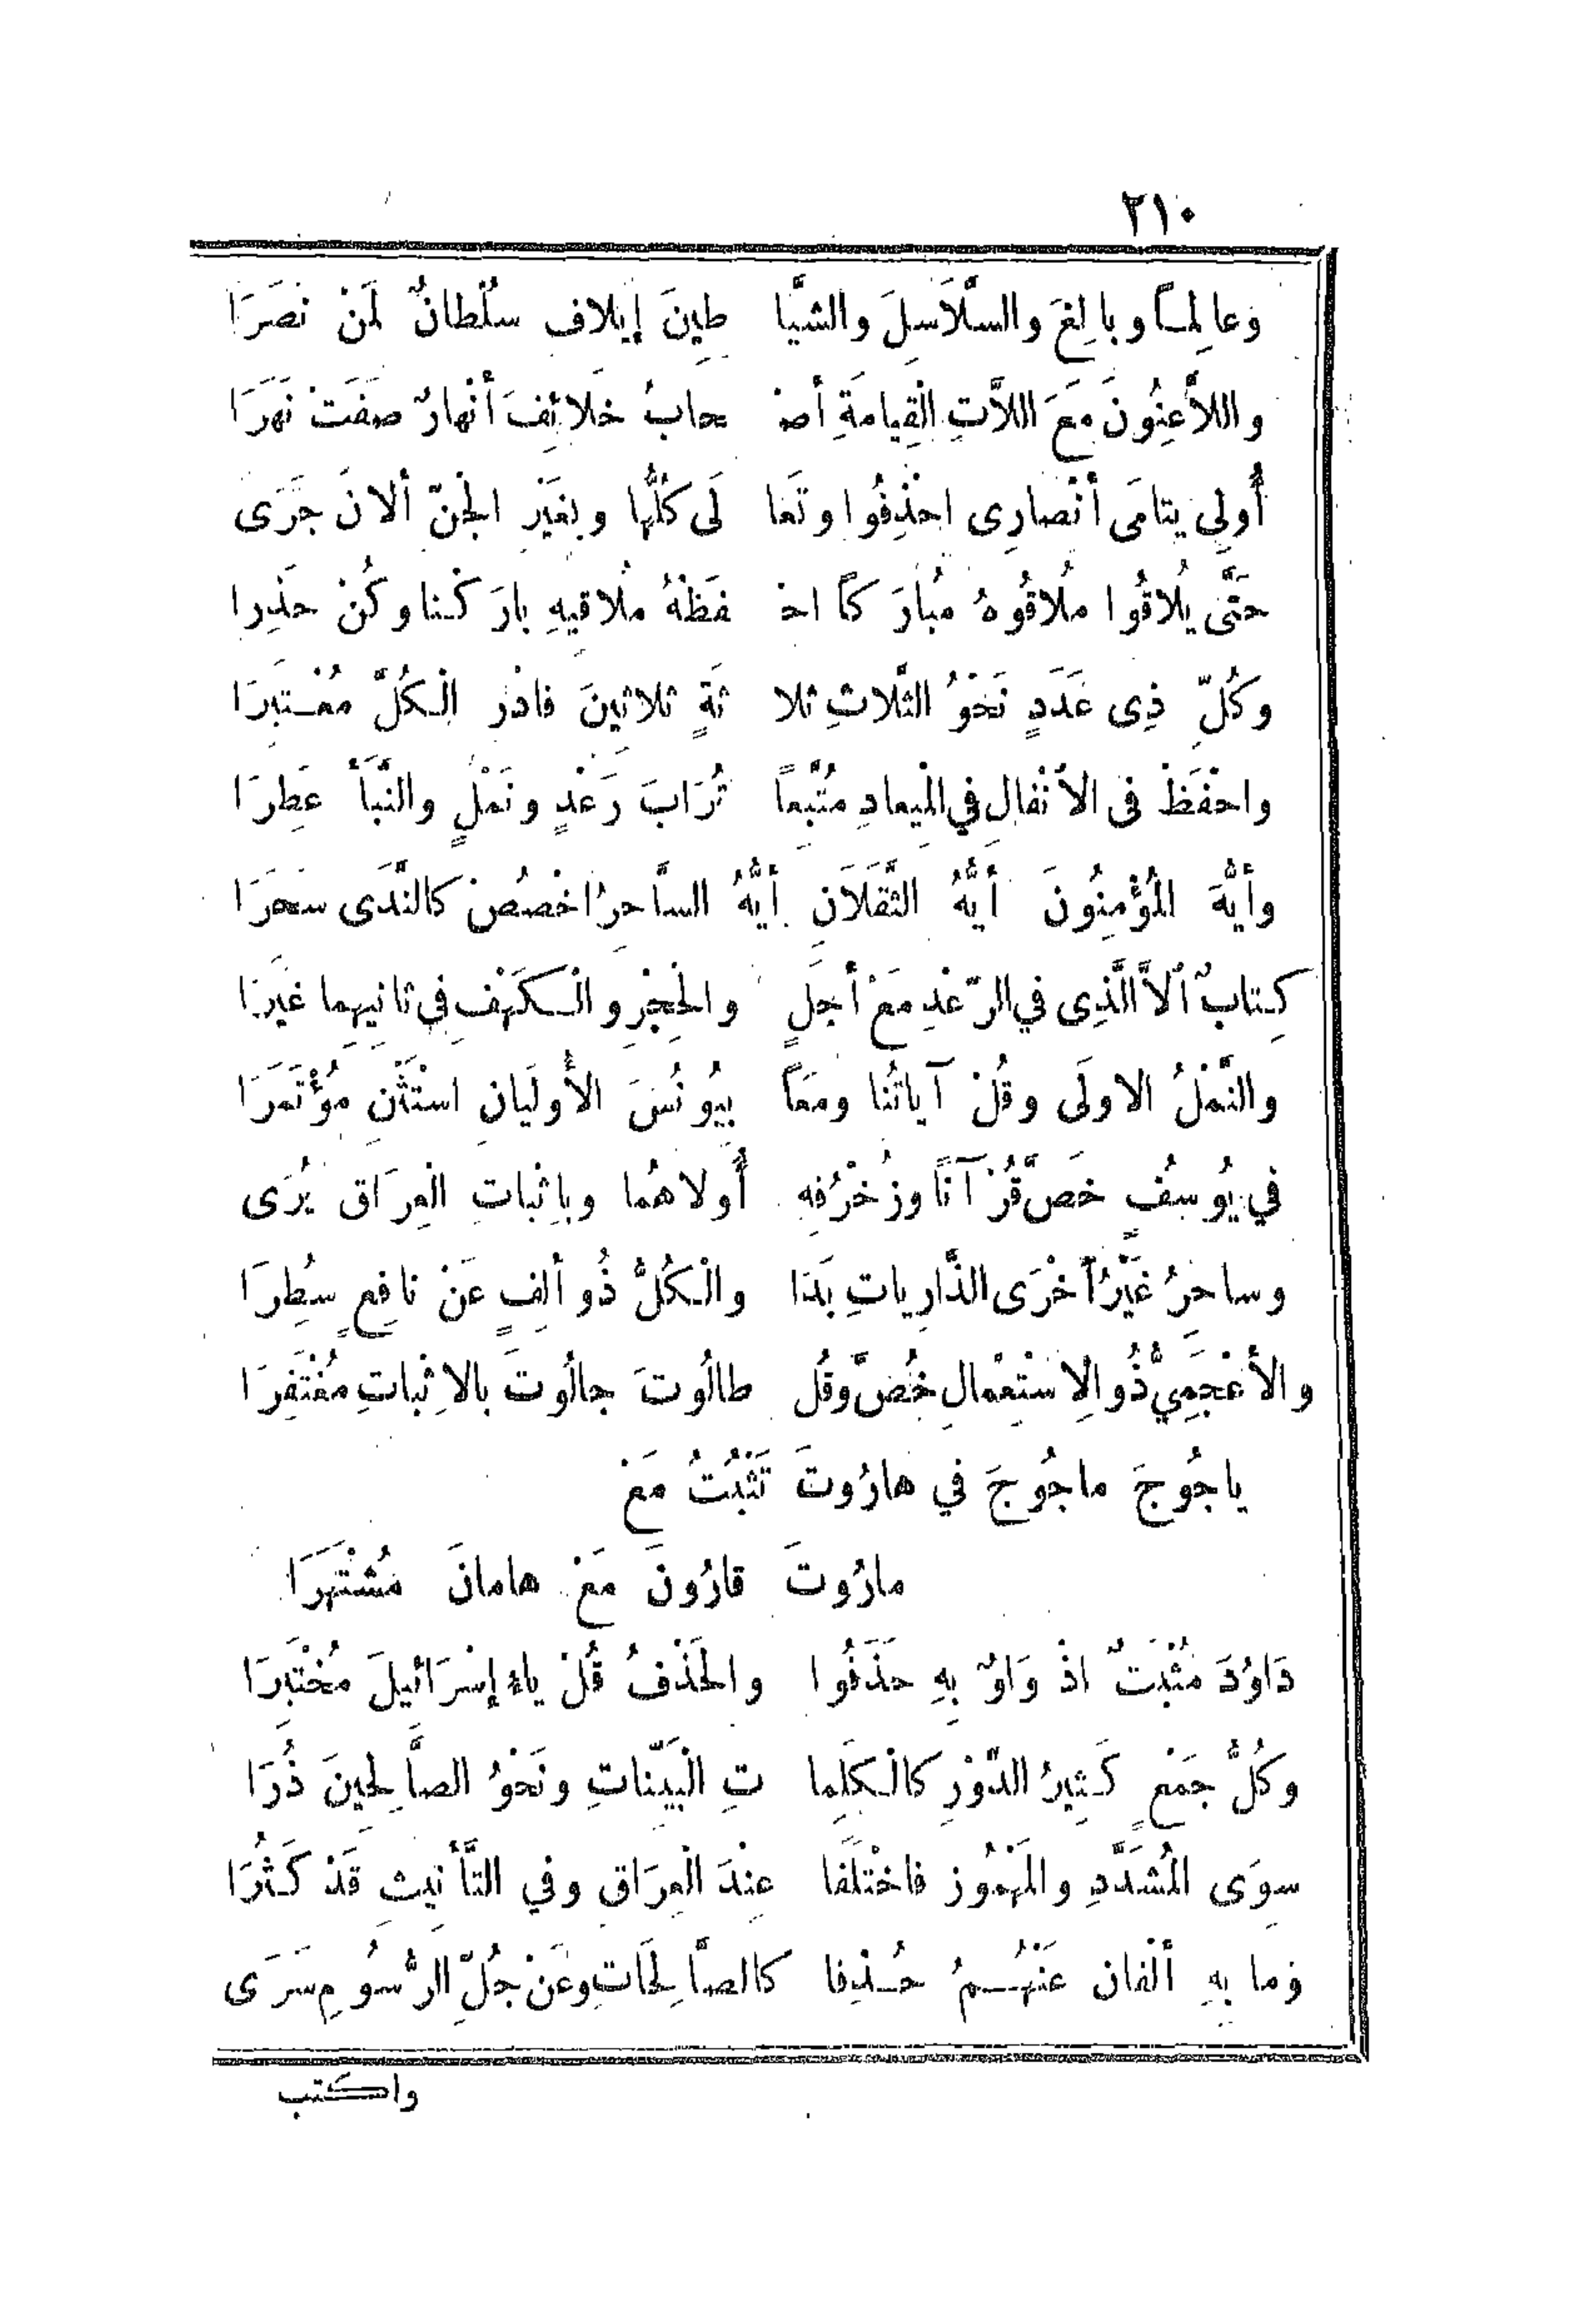 ٢١٠
وَعالِمـاً وبالِغَ والسَّلَاسِلَ والشَّيَا طِينَ إيلاف سُلْطانٌ لَمَنْ نَصَرَا
واللَّاعِنُونَ مَعَ اللاَّتِ الْقِيامَةِ أصْـ حابُ خلائِفَ أنْهارٌ صَفَتْ نَهَرَا
أُولِى يتامَى أنْصارِى احْذِفُوا وتَعَا لَى كُلُّها وبِغَيْرِ الجْنّ ألانَ جَرَى
حَتَّى يُلَاقُوا مُلَاقُوهُ مُبَارَكاً احْـ فَظْهُ مُلَاقِيهِ بارَكْـنا وكُنْ حَذِرا
وكُلّ ذِى عَدَدٍ نَحْوُ الثَّلاثِ ثلا ثَةٍ ثلاثِينَ فادْرِ الْـكُلَّ مُعْـتَبِرَا
واحْفَظْ فى الأنْفالِ في الْمِيعادِ مُتَّبِعاً تُرَابَ رَعْدٍ ونَمْلٍ والنَّبَأ عَطِرَا
وأيُّهَ الْمُؤْمِنُونَ أيُّهُ الثَّقَلَانِ أيُّهُ السَّاحِرُ اخْصُصْ كالنَّدَى سَحَرَا
كِتابٌ ٱلاَّ الَّذِى في الرّعْدِ مَعْ أجَلٍ والْحِجْرِ والْـكَهْفِ في ثانِيهِما غَبَرَا
والنَّمْلُ الاولَى وقُلْ آياتُنا ومَعاً بِيُونُسَ الأُولَيانِ اسْتَثْنِ مُؤْتَمَرَا
في يُوسُفٍ خَصّ قُرْآناً وزُخْرُفِهِ أُولاهُما وبِاثْباتِ الْعِرَاقِ يُرَى
وساحرُ غَيْرُ أُخْرَى الذَّارِياتِ بَدَا والْـكُلُّ ذُو ألِفٍ عَنْ نافِعٍ سُطِرَا
والأعْجَمِيُّ ذُو الِاسْتِعْمالِ خُصَّ وقُل طالُوتَ جالُوتَ بالاِثْباتِ مُغْتَفِرَا
ياجُوجَ ماجُوجَ في هارُوتَ تَثْبُتُ مَعْ
مارُوتَ قارُونَ مَعْ هامانَ مُشْتَهِرَا
دَاوُدَ مُثْبَتٌ اذْ وَاوٌ بِهِ حَذَفُوا والْحَذْفُ قُلْ ياءِ إسْرَائيلَ مُخْتَبَرَا
وكُلُّ جَمْعٍ كَـثِيرُ الدَّوْرِ كالْـكَلِما تِ الْبَيِّناتِ ونَحْوُ الصَّالِحِينَ ذُرَا
سِوَى الْمُشَدَّدِ والْمَهْمُوز فاخْتَلَفا عِنْدَ الْعِرَاقِ وفي التَّأنِيثِ قَدْ كَـثُرَا
وَما بِهِ ألْفانِ عَنْهُـمُ حُـذِفا كالصَّالِحَاتِ وعَنْ جُلِّ الرُّسُومِ سَرَى
واكتب